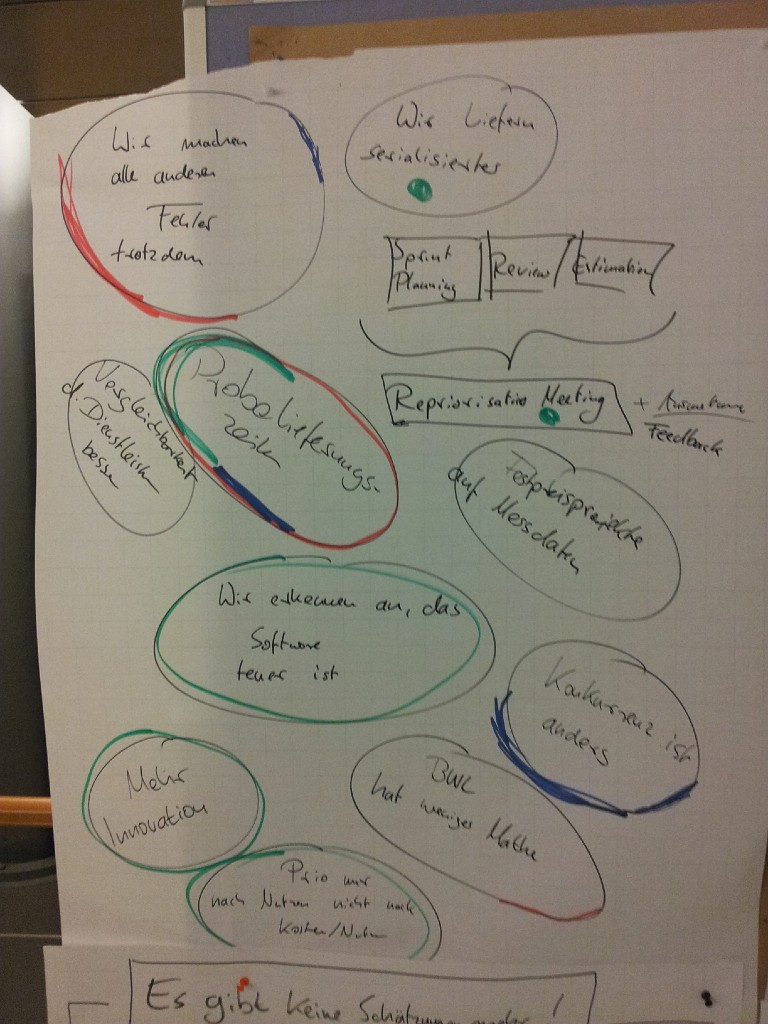 Wir machen
alle anderen
Fehler
trotzdem
Wir liefern
serialisierter
Sprint
Planning
Review
Estimation
Repriorisatio Meeting
+
Feedback
Probelieferungs-
zeiten
Vergleichbarkeit
d. Dienstleister
besser
Festpreisprojekte
auf Messdaten
Wir erkennen an, das
Software
teuer ist
Konkurrenz ist
anders
Mehr
Innovation
BWL
hat weniger Mathe
Prio nur
nach Nutzen nicht nach
Kosten/Nutzen
Es gibt keine Schätzungen mehr !